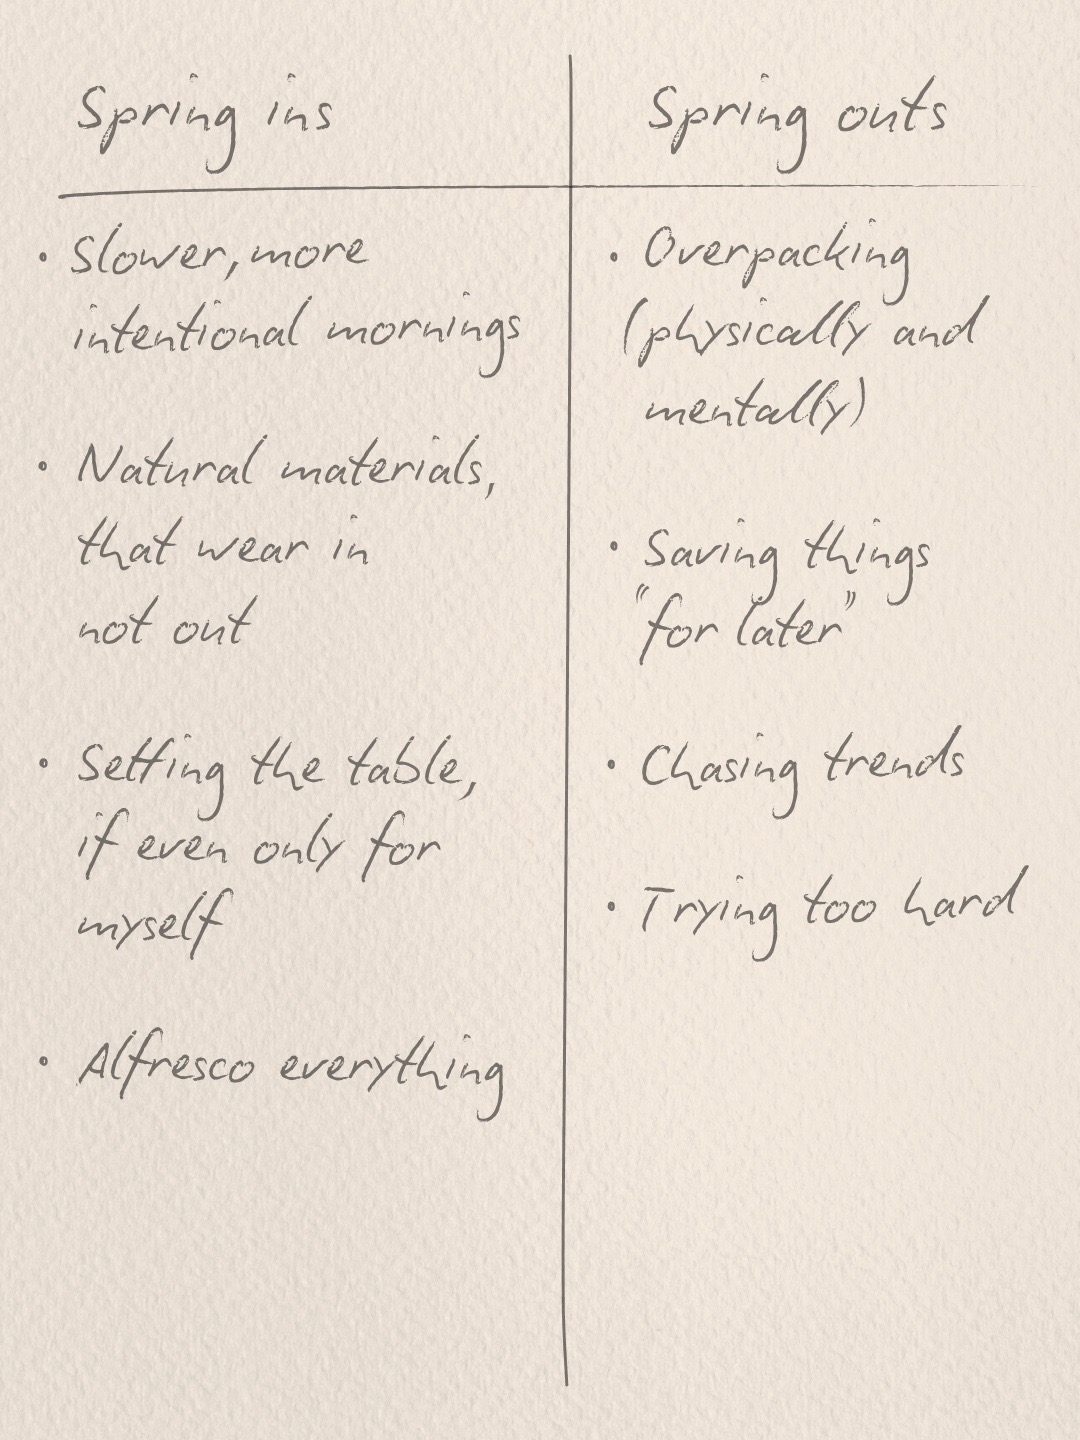 Spring ins
• Slower, more
intentional mornings
• Natural materials,
that wear in
not out
• Setting the table,
if even only for
myself
• Alfresco everything
Spring outs
• Overpacking
(physically and
mentally)
• Saving things
"for later"
• Chasing trends
• Trying too hard